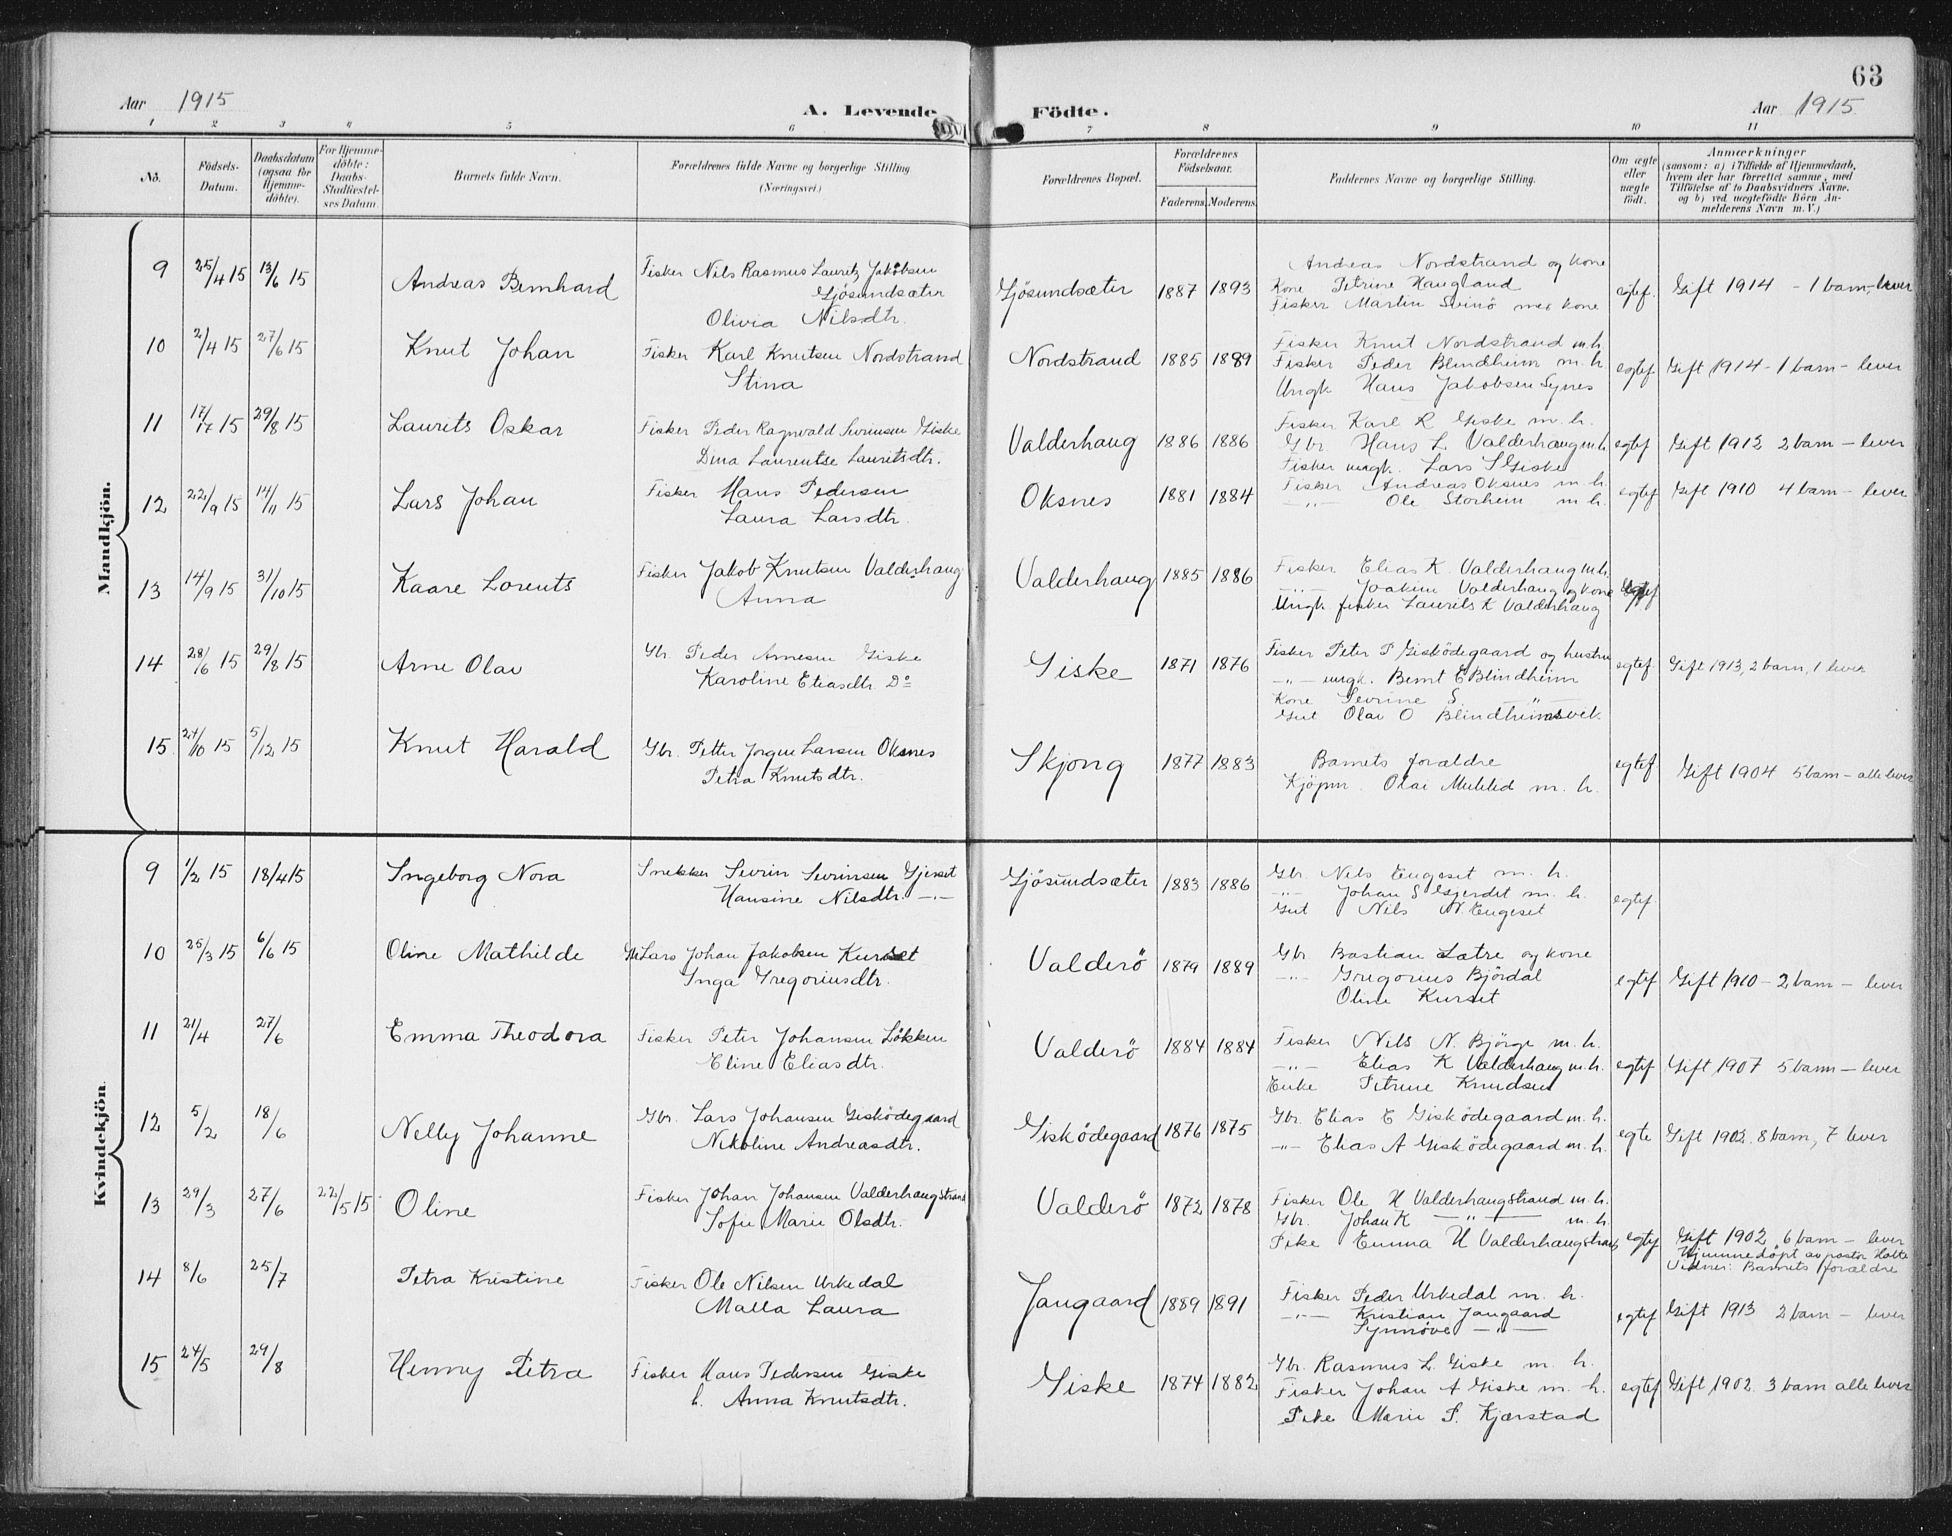 63
Aar 1915 A. Levende Födte. Aar 1915
1 2 3 4 5 6 7 8 9 10 11
No. Födsels-Datum. Daabsdatum (ogsaa for Hjemme-döbte). For Hjemme-döbte: Daabs-Stadfæstel-ses Datum. Barnets fulde Navn. Forældrenes fulde Navne og borgerlige Stilling (Næringsvei.) Forældrenes Bopæl. Forældrenes Födselsaar. Faderens. Moderens. Faddernes Navne og borgerlige Stilling. Om ægte eller uægte födt. Anmærkninger (saasom: a) i Tilfælde af Hjemmedaab, hvem der har forrettet samme, med Tilföielse af to Daabsvidners Navne, og b) ved uægtefödte Börn An-melderens Navn m. V.)
Mandkjön.
9 25/4 15 13/6 15 Andreas Bernhard Fisker Nils Rasmus Lauritz Jakobsen Gjösundsæter Olivia Nilsdtr. Gjösundsæter 1887 1893 Andreas Nordstrand og kone
Kone Petrine Haugland
Fisker Martin Svinö med kone egtef. Gift 1914 - 1 barn - lever
10 2/4 15 27/6 15 Knut Johan Fisker Karl Knutsen Nordstrand
Stina Nordstrand 1885 1889 Fisker Knut Nordstrand m.h.
Fisker Peder Blindheim m. h
Ungk Hans Jakobsen Synes egtef Gift 1914 - 1 barn - lever
11 29/8 15 Laurits Oskar Fisker Peder Ragnvald Sevrinsen Giske
Dina Laurentse Lauritsdtr. Valderhaug 1886 1886 Fisker Karl R Giske m. h.
Gbr. Hans L. Valderhaug m.h.
Fisker ungk. Lars S Giske egtef Gift 1912 2 barn - lever
12 22/9 15 14/11 15 Lars Johan Fisker Hans Pedersen
Laura Larsdtr. Oksnes 1881 1884 Fisker Andreas Oksnes m. h
-"- Ole Storheim m. h. egtef Gift 1910 4 barn - lever
13 14/9 15 31/10 15 Kaare Lorents Fisker Jakob Knutsen Valderhaug
Anna Valderhaug 1885 1886 Fisker Elias K. Valderhaug m.h.
-"- Joakim Valderhaug og kone
Ungk fisker Laurits K Valderhaug egtef
14 28/6 15 29/8 15 Arne Olav Gbr. Peder Arnesen Giske
Karoline Eliasdtr. Do Giske 1871 1876 Fisker Peter P Gisködegaard og hustru
-"- ungk. Bernt E Blindheim
Kone Sevrine S
Gut Olai O Blindheimsvik egtef Gift 1913, 2 barn, 1 lever
15 24/10 15 5/12 15 Knut Harald Gbr. Petter Jörgen Larsen Oksnes
Petra Knutsdtr. Skjong 1877 1883 Barnets forældre
Kjöpm. Olai m. h. egtef Gift 1904 5 barn - alle lever
Kvindekjön.
9 1/2 15 18/4 15 Ingeborg Nora Snekker Sevrin Sevrinsen Gjerset
Hansine Nilsdtr. -"- Gjösundsæter 1883 1886 Gbr. Nils Engeset m. h.
-"- Johan S Gjerdet m. h.
Gut Nils N. Engeset egtef
10 25/3 15 6/6 15 Oline Mathilde Lars Johan Jakobsen Kurset
Inga Gregoriusdtr. Valderö 1879 1889 Gbr Bastian Sætre og kone
-"- Gregorius Björdal
Oline Kurset egtef Gift 1910 - 2 barn - lever
11 21/4 27/6 Emma Theodora Fisker Peter Johansen Lökken
Eline Eliasdtr. Valderö 1884 1884 Fisker Nils N. Björge m. h.
-"- Elias K Valderhaug m.h.
Enke Petrine Knudsen egtef Gift 1907 5 barn - lever
12 5/2 18/6 Nelly Johanne Gbr. Lars Johansen Gisködegaard
Nikoline Andreasdtr. Gisködegaard 1876 1875 Gbr. Elias E Gisködegaard m. h.
-"- Elias A Gisködegaard m. h. egte Gift 1902. 8 barn, 7 lever
13 29/3 27/6 22/5 15 Oline Fisker Johan Johansen Valderhaugstrand
Sofie Marie Olsdtr. Valderö 1872 1878 Fisker Ole H Valderhaugstrand m. h.
Gbr. Johan K -"- m. h.
Pike Emma H Valderhaugstrand egtef Gift 1902 6 barn - lever
Hjemmedöpt av pastor Holte
Vidner: Barnets forældre
14 8/6 25/7 Petra Kristine Fisker Ole Nilsen Urkedal
Malla Laura Jangaard 1889 1891 Fisker Peder Urkedal m. h.
-"- Kristian Jangaard
Synnöve -"- egtef Gift 1913 2 barn - lever
15 24/5 29/8 Henny Petra Fisker Hans Pedersen Giske
h. Anna Knutsdtr. Giske 1874 1882 Gbr. Rasmus L. Giske m. h.
Fisker Johan A Giske m. h.
Pike Marie P. Kjærstad egtef Gift 1902 3 barn alle lever